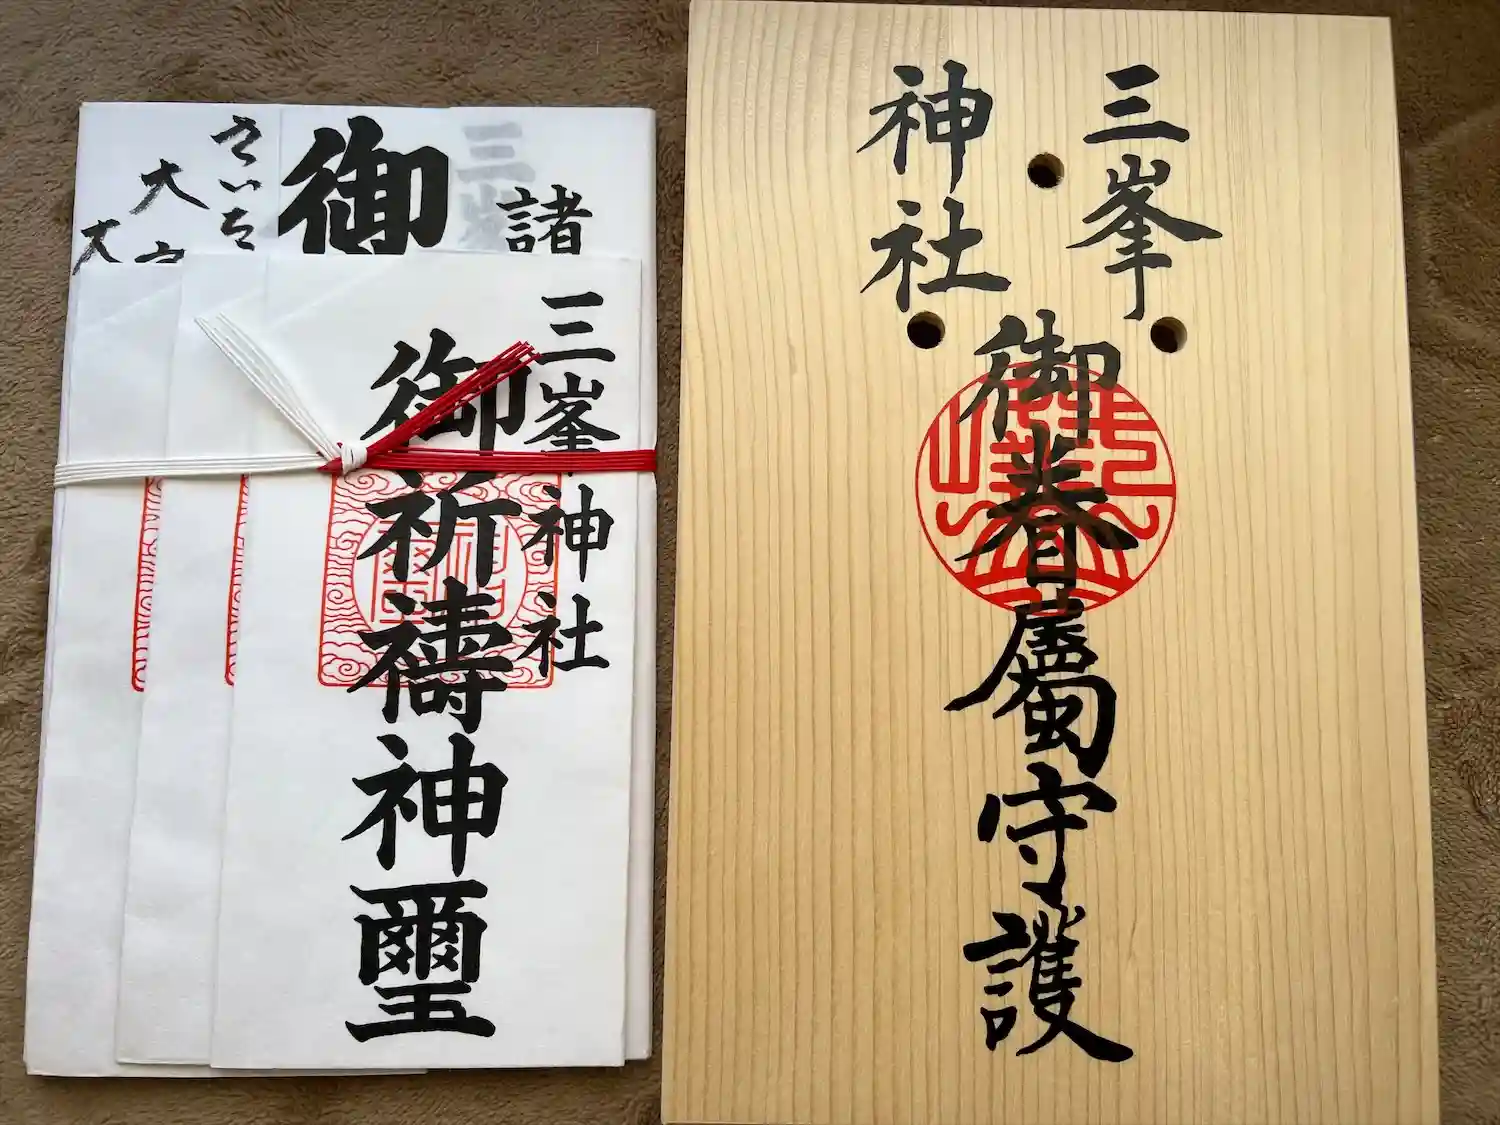 三峯
神社
御眷属守護
三峯神社
御祈禱神璽
諸
三峯
御
さいた
大
大